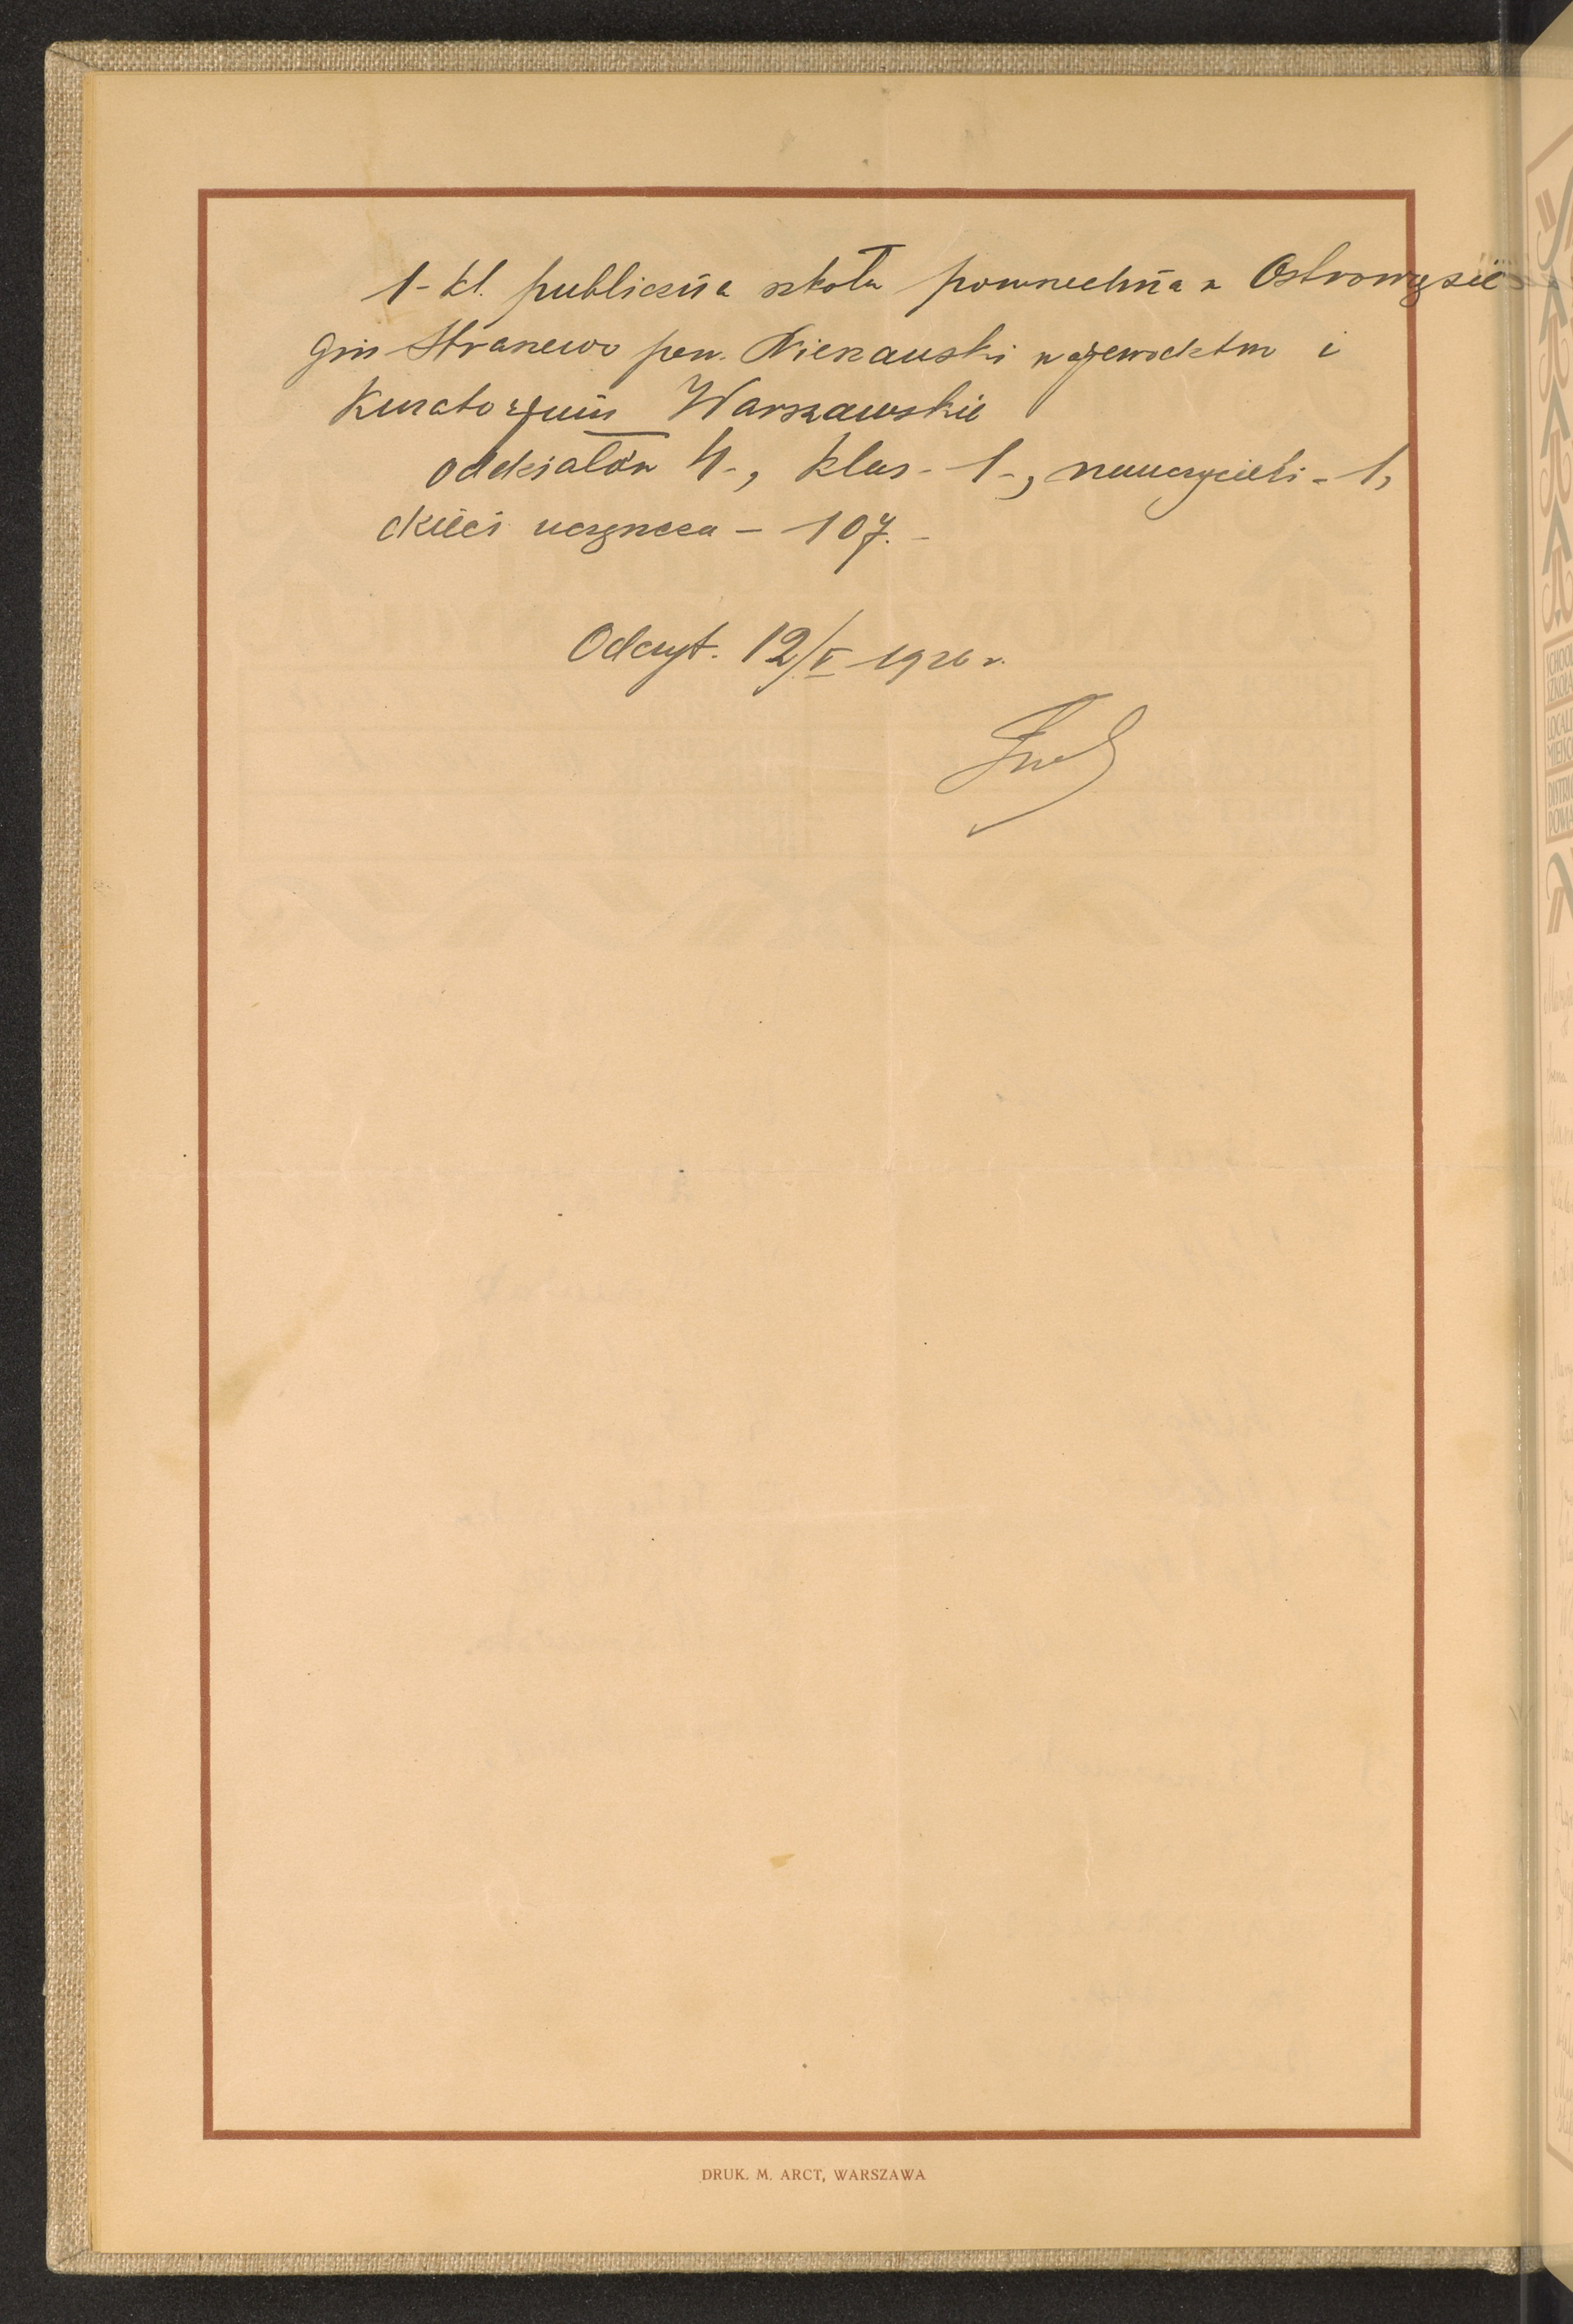 1-kl. publiczna szkoła powszechna w Ostrowąsie
gm Straszewo pow. Nieszawski województwo i
Kuratorjum Warszawskie
oddziałów 4-, klas- 1-, nauczycieli- 1,
dzieci uczęszcza - 107.-
Odczyt. 12/V 1926 r.
DRUK. M. ARCT, WARSZAWA